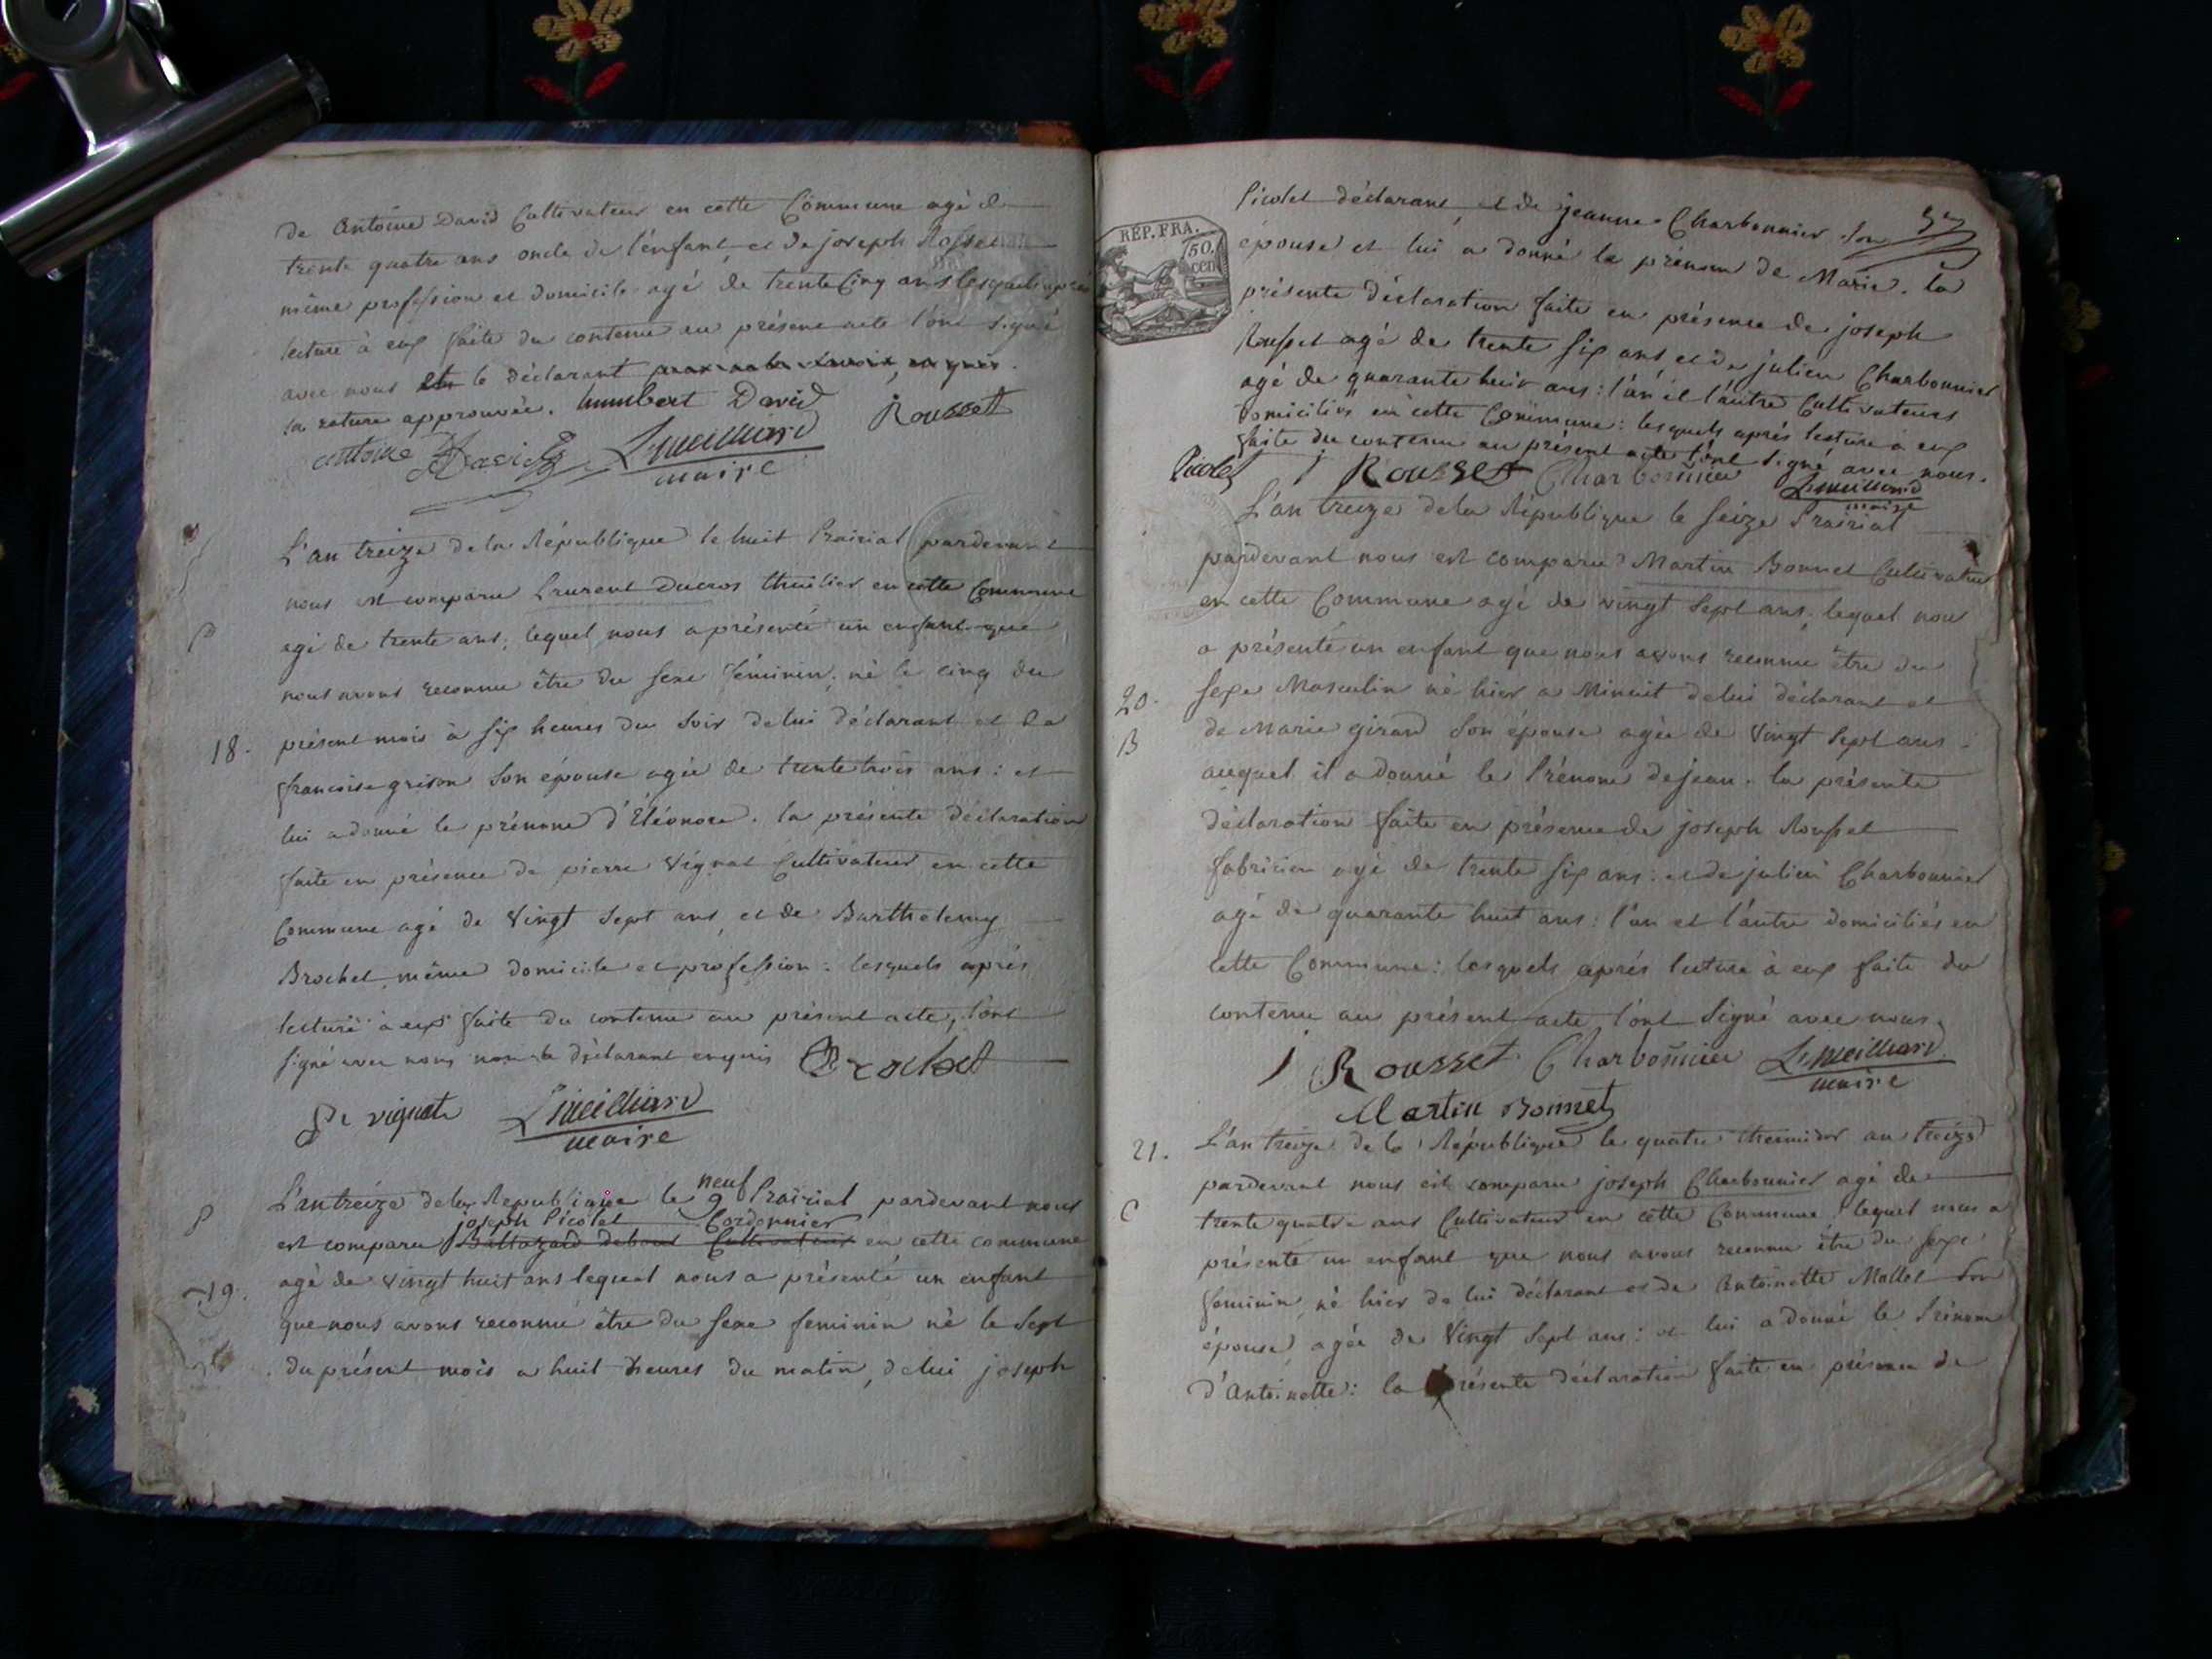 De Antoine David Cultivateur en cette Commune agé de
trente quatre ans oncle de l'enfant, et de joseph Rosset
même profession et domicile agé de trente Cinq ans lesquels après
lecture à eux faite du contenu au présent acte l'ont signé
avec nous et le déclarant
la rature approuvée. humbert David Rousset
antoine David Lmeilliard
maire
L'an treize de la République le huit Prairial pardevant
nous est comparu Laurent Ducros thuilier en cette Commune
agé de trente ans, lequel nous a présenté un enfant que
nous avons reconnu être du sexe féminin, né le cinq du
18. présent mois à six heures du soir de lui déclarant et de
françoise grison son épouse agée de trente trois ans : et
lui a donné le prénome d'Éléonore. la présente déclaration
faite en présence de pierre Vignat Cultivateur en cette
Commune agé de Vingt Sept ans, et de Barthelemy
Brochet, même domicile et profession : lesquels après
lecture à eux faite du contenu au présent acte, l'ont
signé avec nous non le déclarant enquis Brochet
Pe vignat Lmeilliard
maire
P L'an treize de la Republique le neuf 9 Prairial pardevant nous
joseph Picolet Cordonnier
est comparu Baltazard debout Cultivateur en cette commune
19. agé de vingt huit ans lequel nous a présenté un enfant
que nous avons reconnu être du sexe feminin né le Sept
du présent mois a huit heures du matin, de lui joseph
57
REP. FRA.
50.
cen
Picolet déclarant, et de jeanne Charbonnier son
épouse et lui a donné le prénom de Marie. la
présente déclaration faite en présence de joseph
Rousset agé de trente six ans, et de julien Charbonnier
agé de quarante huit ans : l'un et l'autre Cultivateurs
domiciliés en cette Commune : lesquels après lecture à eux
faite du contenu au présent acte l'ont signé avec nous.
Picolet J Rousset Charbonnier Lmeilliard
maire
L'an treize de la République le seize Prairial
pardevant nous est comparu Martin Bonnet Cultivateur
en cette Commune agé de vingt Sept ans, lequel nou
a présenté un enfant que nous avons reconnu être du
20. sexe Masculin né hier a Minuit de lui déclarant et
B de Marie girard son épouse agée de Vingt Sept ans
auquel il a donné le Prénome de jean. la présente
déclaration faite en présence de joseph Rousset
fabricien agé de trente six ans : et de julien Charbonnier
agé de quarante huit ans : l'un et l'autre domiciliés en
cette Commune : lesquels après lecture à eux faite du
contenu au présent acte, l'ont signé avec nous.
J Rousset Charbonnier Lmeilliard
maire
Martin Bonnet
21. L'an treize de la République le quatre thermidor an treize
pardevant nous est comparu joseph Charbonnier agé de
C trente quatre ans Cultivateur en cette Commune lequel nous a
présenté un enfant que nous avons reconnu être du sexe
feminin né hier de lui déclarant et de Antoinette Mallet son
épouse agée de Vingt Sept ans : et lui a donné le Prénome
d'Antoinette : la présente déclaration faite en présence de